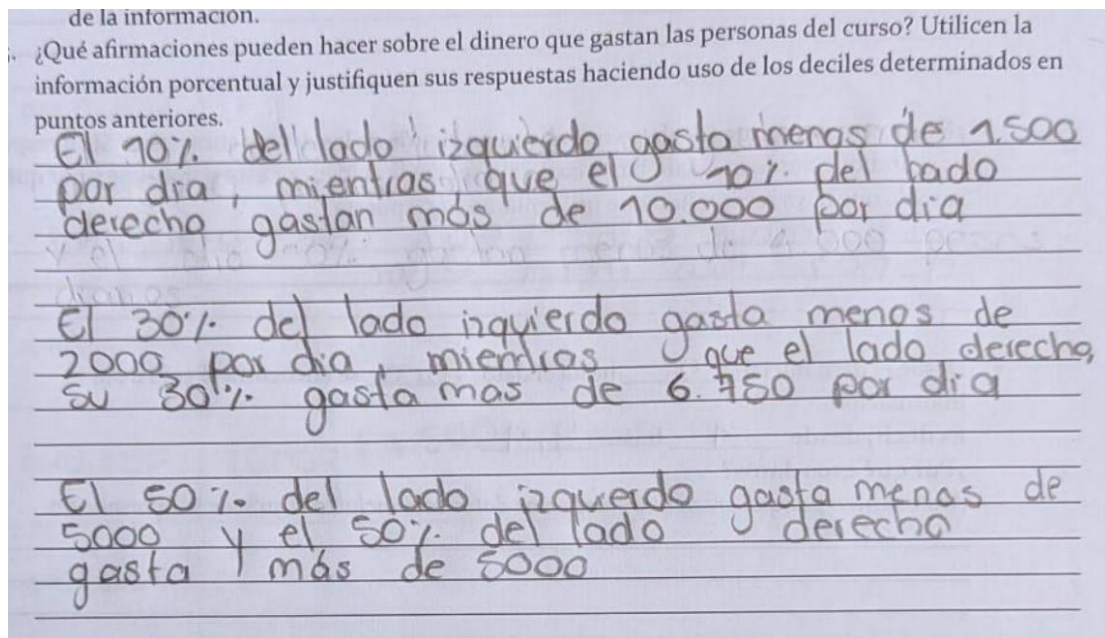 de la información.
¿Qué afirmaciones pueden hacer sobre el dinero que gastan las personas del curso? Utilicen la
información porcentual y justifiquen sus respuestas haciendo uso de los deciles determinados en
puntos anteriores.
El 10% del lado izquierdo gasta menos de 1.500
por día, mientras que el 10% del lado
derecho gastan más de 10.000 por día
El 30% del lado izquierdo gasta menos de
2000 por dia, mientras que el lado derecho,
su 30% gasta mas de 6.750 por dia
El 50% del lado izquierdo gasta menos de
5000 y el 50% del lado derecho
gasta más de 5000